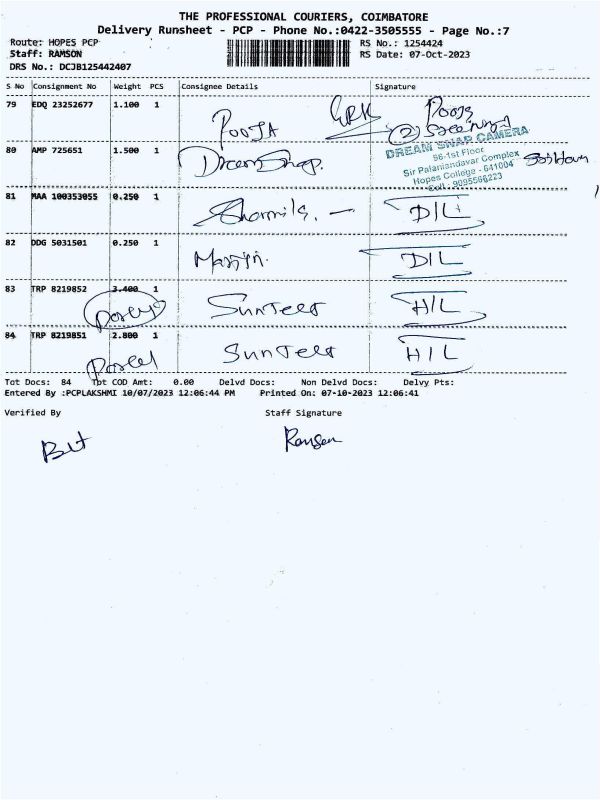 THE PROFESSIONAL COURIERS, COIMBATORE
Delivery Runsheet - PCP - Phone No.:0422-3505555 - Page No.:7
Route: HOPES PCP RS No.: 1254424
Staff: RAMSON RS Date: 07-Oct-2023
DRS No.: DCJB125442407
S No Consignment No Weight PCS Consignee Details Signature
79 EDQ 23252677 1.100 1 POOJA Pooja
80 AMP 725651 1.500 1 Dream Snap.
DREAM SNAP CAMERA
56-1st Floor
Sir Palaniandavar Complex
Hopes College - 641004
Cell : 9095566223
81 MAA 100353055 0.250 1 Sharmila. D/L
82 DDG 5031501 0.250 1 D/L
83 TRP 8219852 3.400 1 SunTeet H/L
Parcel
84 TRP 8219851 2.800 1 SunTeet H/L
Parcel
Tot Docs: 84 Tpt COD Amt: 0.00 Delvd Docs: Non Delvd Docs: Delvy Pts:
Entered By :PCPLAKSHMI 10/07/2023 12:06:44 PM Printed On: 07-10-2023 12:06:41
Verified By Staff Signature
Ramson